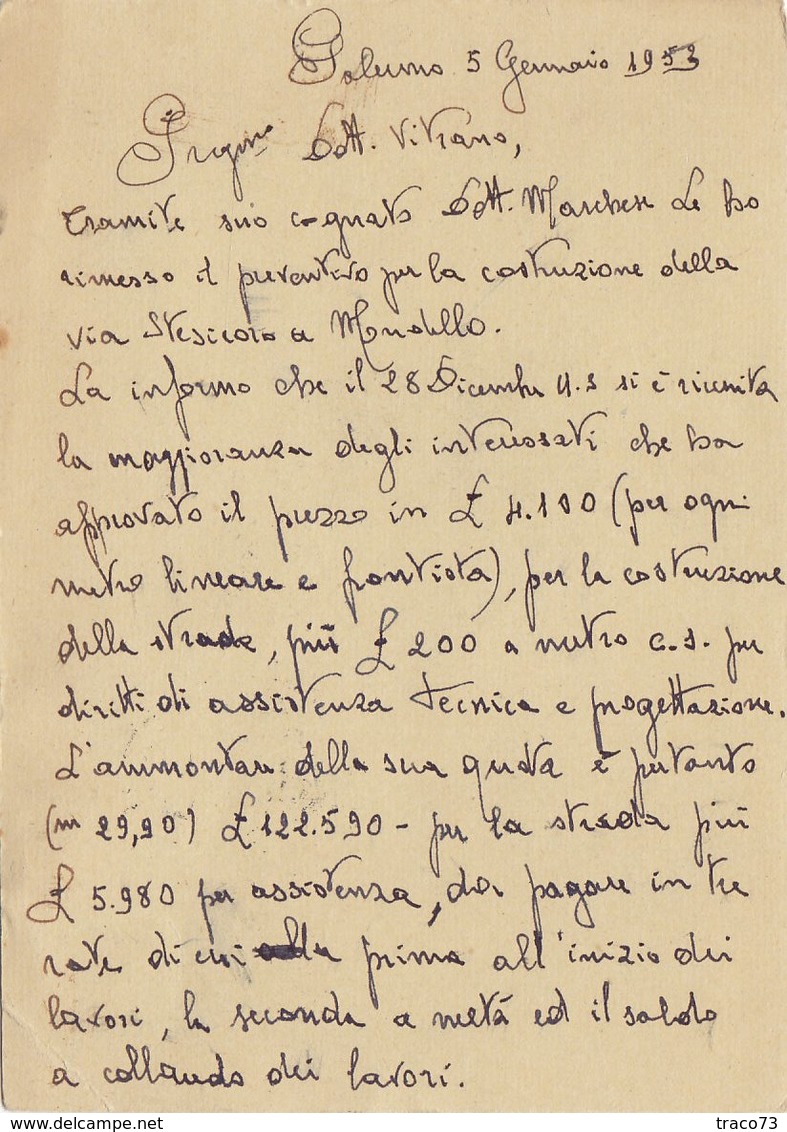 Palermo 5 Gennaio 1953
Pregmo Dott. Vitrano,
tramite suo cognato Dott. Marchese Le ho
rimesso il preventivo per la costruzione della
via Stesicoro a Mondello.
La informo che il 28 Dicembre u.s si è riunita
la maggioranza degli interessati che ha
approvato il prezzo in £ 4.100 (per ogni
metro lineare e frontista), per la costruzione
della strada, più £ 200 a metro c.s. per
diritti di assistenza tecnica e progettazione.
L'ammontare della sua quota è pertanto
(m 29,90) £ 122.590 - per la strada più
£ 5.980 per assistenza, da pagare in tre
rate di cui la prima all'inizio dei
lavori, la seconda a metà ed il saldo
a collaudo dei lavori.
traco73